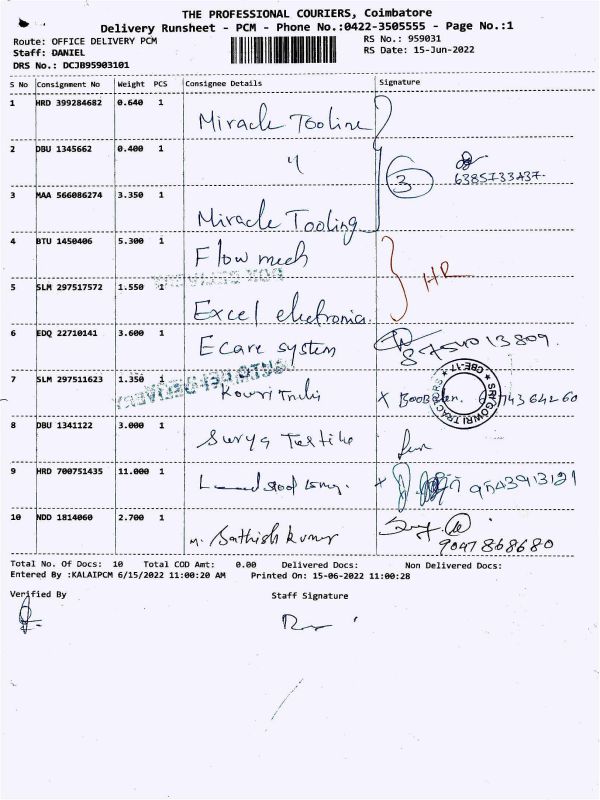 THE PROFESSIONAL COURIERS, Coimbatore
Delivery Runsheet - PCM - Phone No.:0422-3505555 - Page No.:1
Route: OFFICE DELIVERY PCM
RS No.: 959031
Staff: DANIEL
RS Date: 15-Jun-2022
DRS No.: DCJB95903101
S No Consignment No Weight PCS Consignee Details Signature
1 HRD 399284682 0.640 1 Miracle Tooline
2 DBU 1345662 0.400 1 "
3 6385733437
3 MAA 566086274 3.350 1 Miracle Tooling
4 BTU 1450406 5.300 1 Flow mech
HR
5 SLM 297517572 1.550 1 Excel electronic
6 EDQ 22710141 3.600 1 Ecare system
7 SLM 297511623 1.350 1
SRI GOWRI TRACTORS CBE-17
8 DBU 1341122 3.000 1 Surya Textile
9 HRD 700751435 11.000 1 9543913121
10 NDD 1814060 2.700 1 M. Sathish kumar
9047868680
Total No. Of Docs: 10 Total COD Amt: 0.00 Delivered Docs: Non Delivered Docs:
Entered By :KALAIPCM 6/15/2022 11:00:20 AM Printed On: 15-06-2022 11:00:28
Verified By Staff Signature